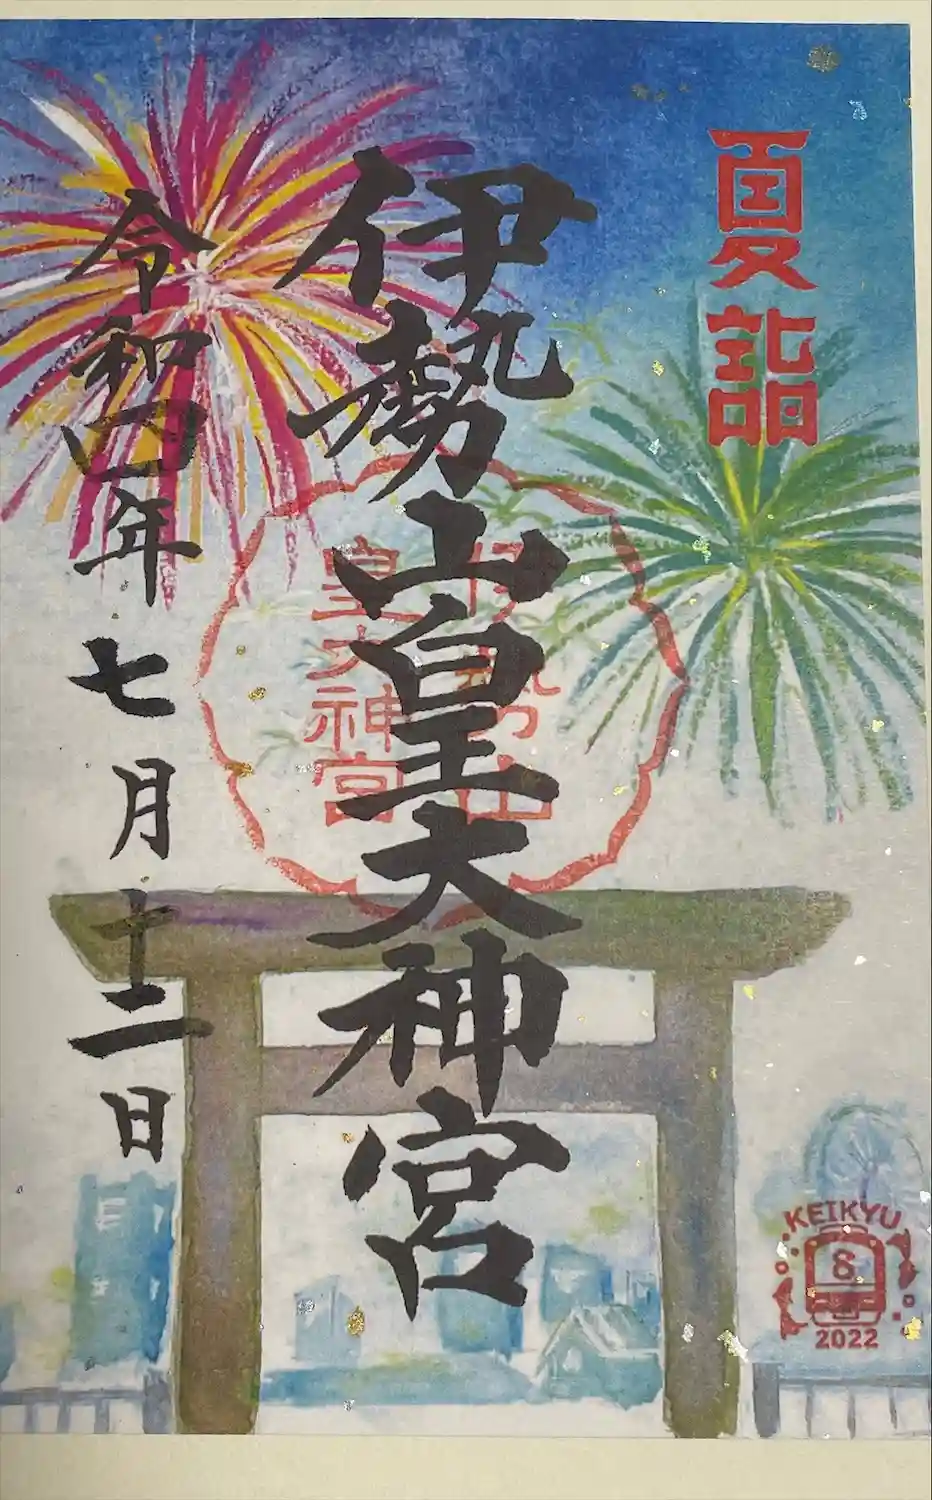 夏詣
伊勢山皇大神宮
伊勢山
皇大神宮
令和四年七月十二日
KEIKYU
8
2022